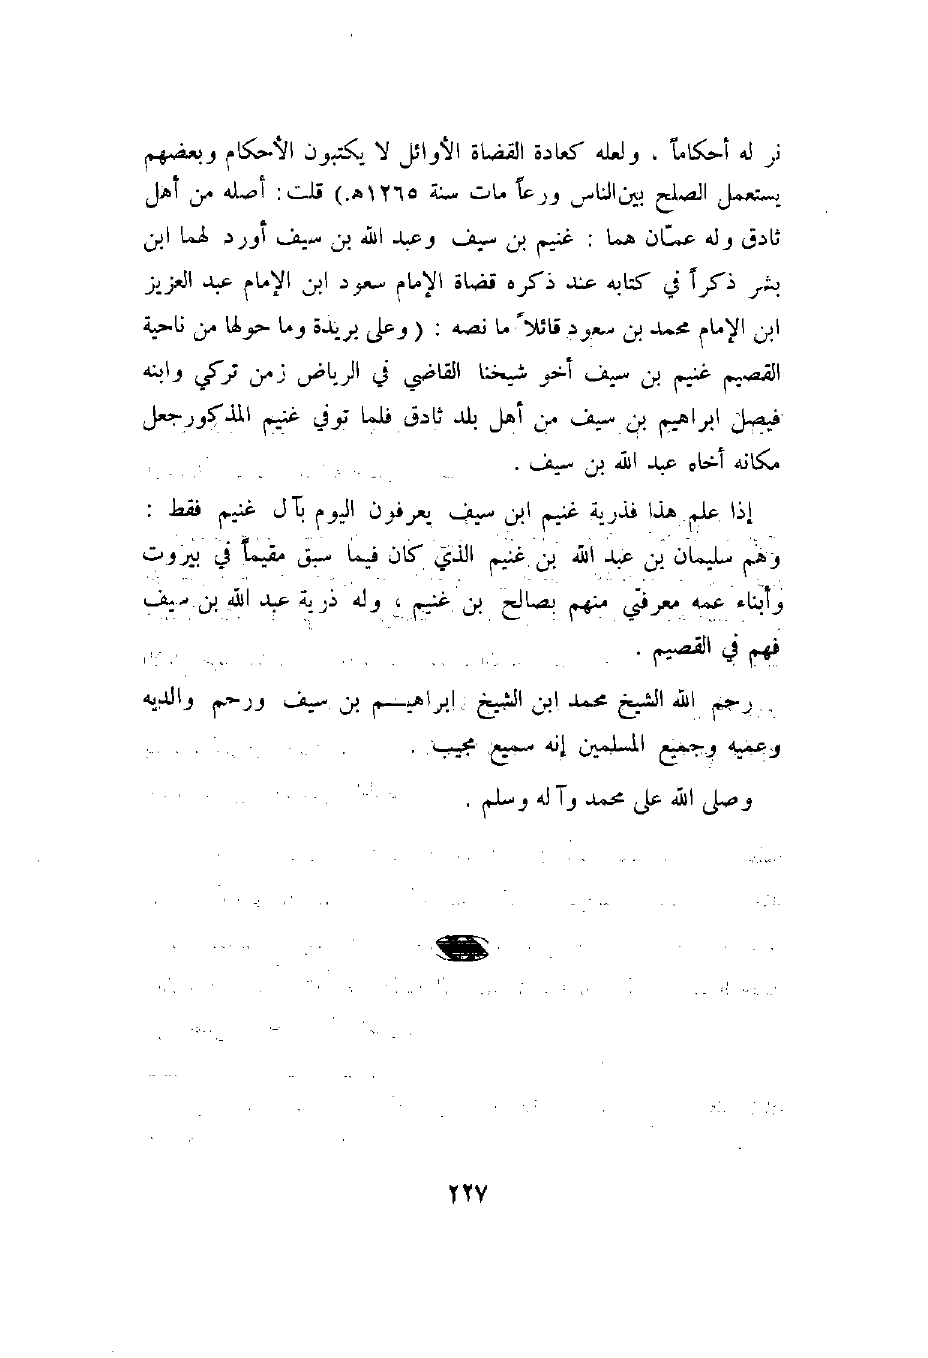 نر له أحكاماً . ولعله كعادة القضاة الأوائل لا يكتبون الأحكام وبعضهم
يستعمل الصلح بين الناس ورعاً مات سنة ١٢٦٥ه.) قلت : أصله من أهل
ثادق وله عمّان هما : غنيم بن سيف وعبد الله بن سيف أورد لهما ابن
بشر ذكراً في كتابه عند ذكره قضاة الإمام سعود ابن الإمام عبد العزيز
ابن الإمام محمد بن سعود قائلاً ما نصه : ( وعلى بريدة وما حولها من ناحية
القصيم غنيم بن سيف أخو شيخنا القاضي في الرياض زمن تركي وابنه
فيصل ابراهيم بن سيف من أهل بلد ثادق فلما توفي غنيم المذكور جعل
مكانه أخاه عبد الله بن سيف .
إذا علم هذا فذرية غنيم ابن سيف يعرفون اليوم بآل غنيم فقط :
وهم سليمان بن عبد الله بن غنيم الذي كان فيما سبق مقيماً في بيروت
وأبناء عمه معرفتي منهم بصالح بن غنيم ، وله ذرية عبد الله بن سيف
فهم في القصيم .
رحم الله الشيخ محمد ابن الشيخ ابراهيم بن سيف ورحم والديه
وعميه وجميع المسلمين إنه سميع مجيب .
وصلى الله على محمد وآله وسلم .
٢٢٧